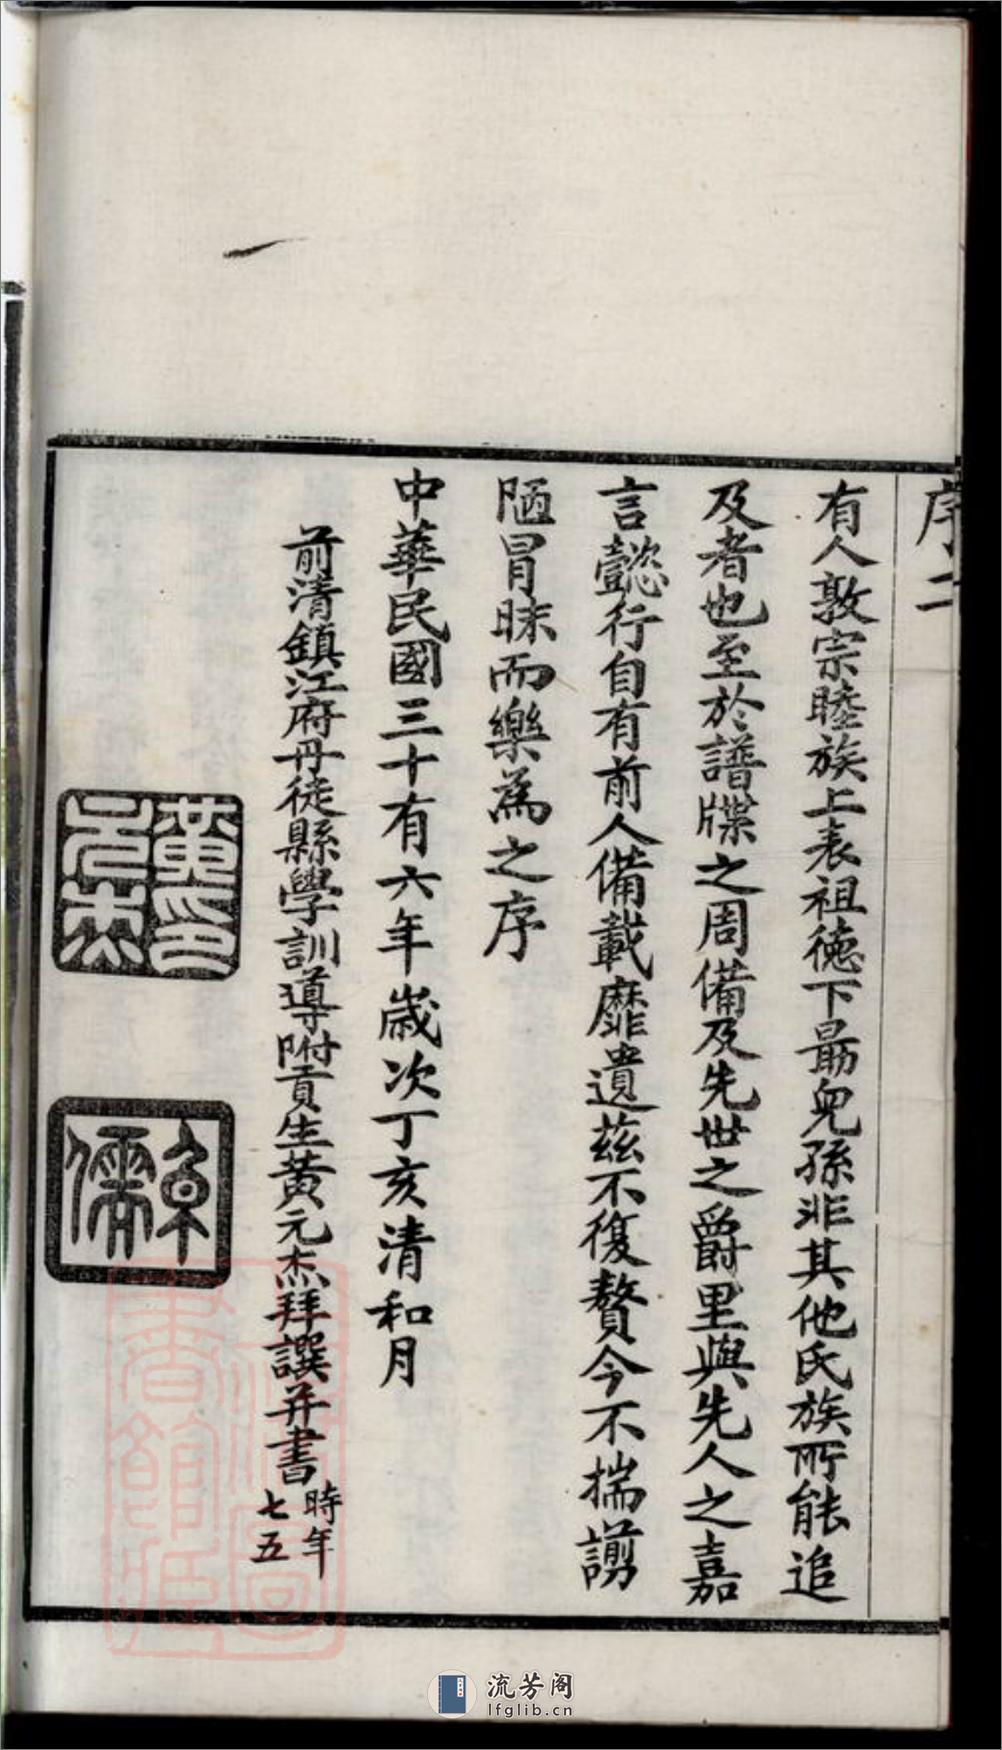 序二
有人敦宗睦族上表祖德下勗兒孫非其他氏族所能追
及者也至於譜牒之周備及先世之爵里與先人之嘉
言懿行自有前人備載靡遺茲不復贅今不揣謭
陋冒昧而樂為之序
中華民國三十有六年歲次丁亥清和月
前清鎮江府丹徒縣學訓導附貢生黃元杰拜譔并書
時年
七五
黃印元杰
儒
流芳阁
lfglib.cn